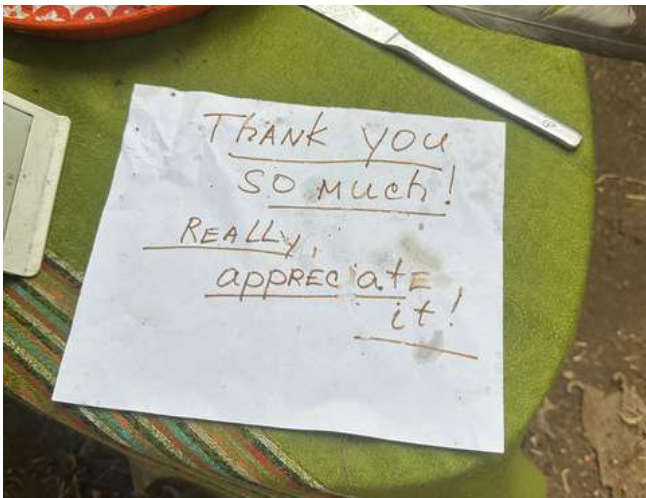 ThANK YOU
SO MUCh!
REALLY,
appRECiatE
it!